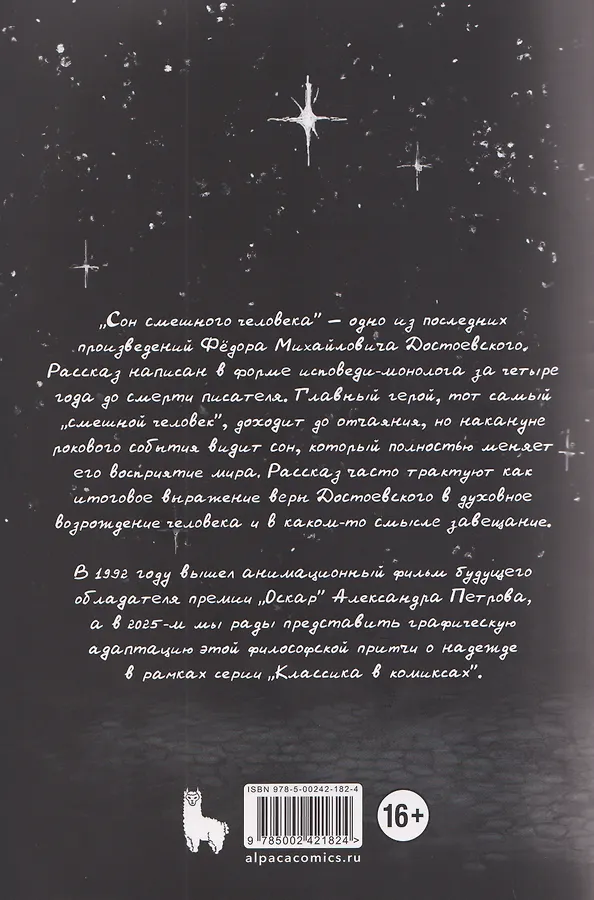 „Сон смешного человека" — одно из последних
произведений Фёдора Михайловича Достоевского.
Рассказ написан в форме исповеди-монолога за четыре
года до смерти писателя. Главный герой, тот самый
„смешной человек", доходит до отчаяния, но накануне
рокового события видит сон, который полностью меняет
его восприятие мира. Рассказ часто трактуют как
итоговое выражение веры Достоевского в духовное
возрождение человека и в каком-то смысле завещание.
В 1992 году вышел анимационный фильм будущего
обладателя премии „Оскар" Александра Петрова,
а в 2025-м мы рады представить графическую
адаптацию этой философской притчи о надежде
в рамках серии „Классика в комиксах".
ISBN 978-5-00242-182-4
9 785002 421824 >
16+
alpacacomics.ru